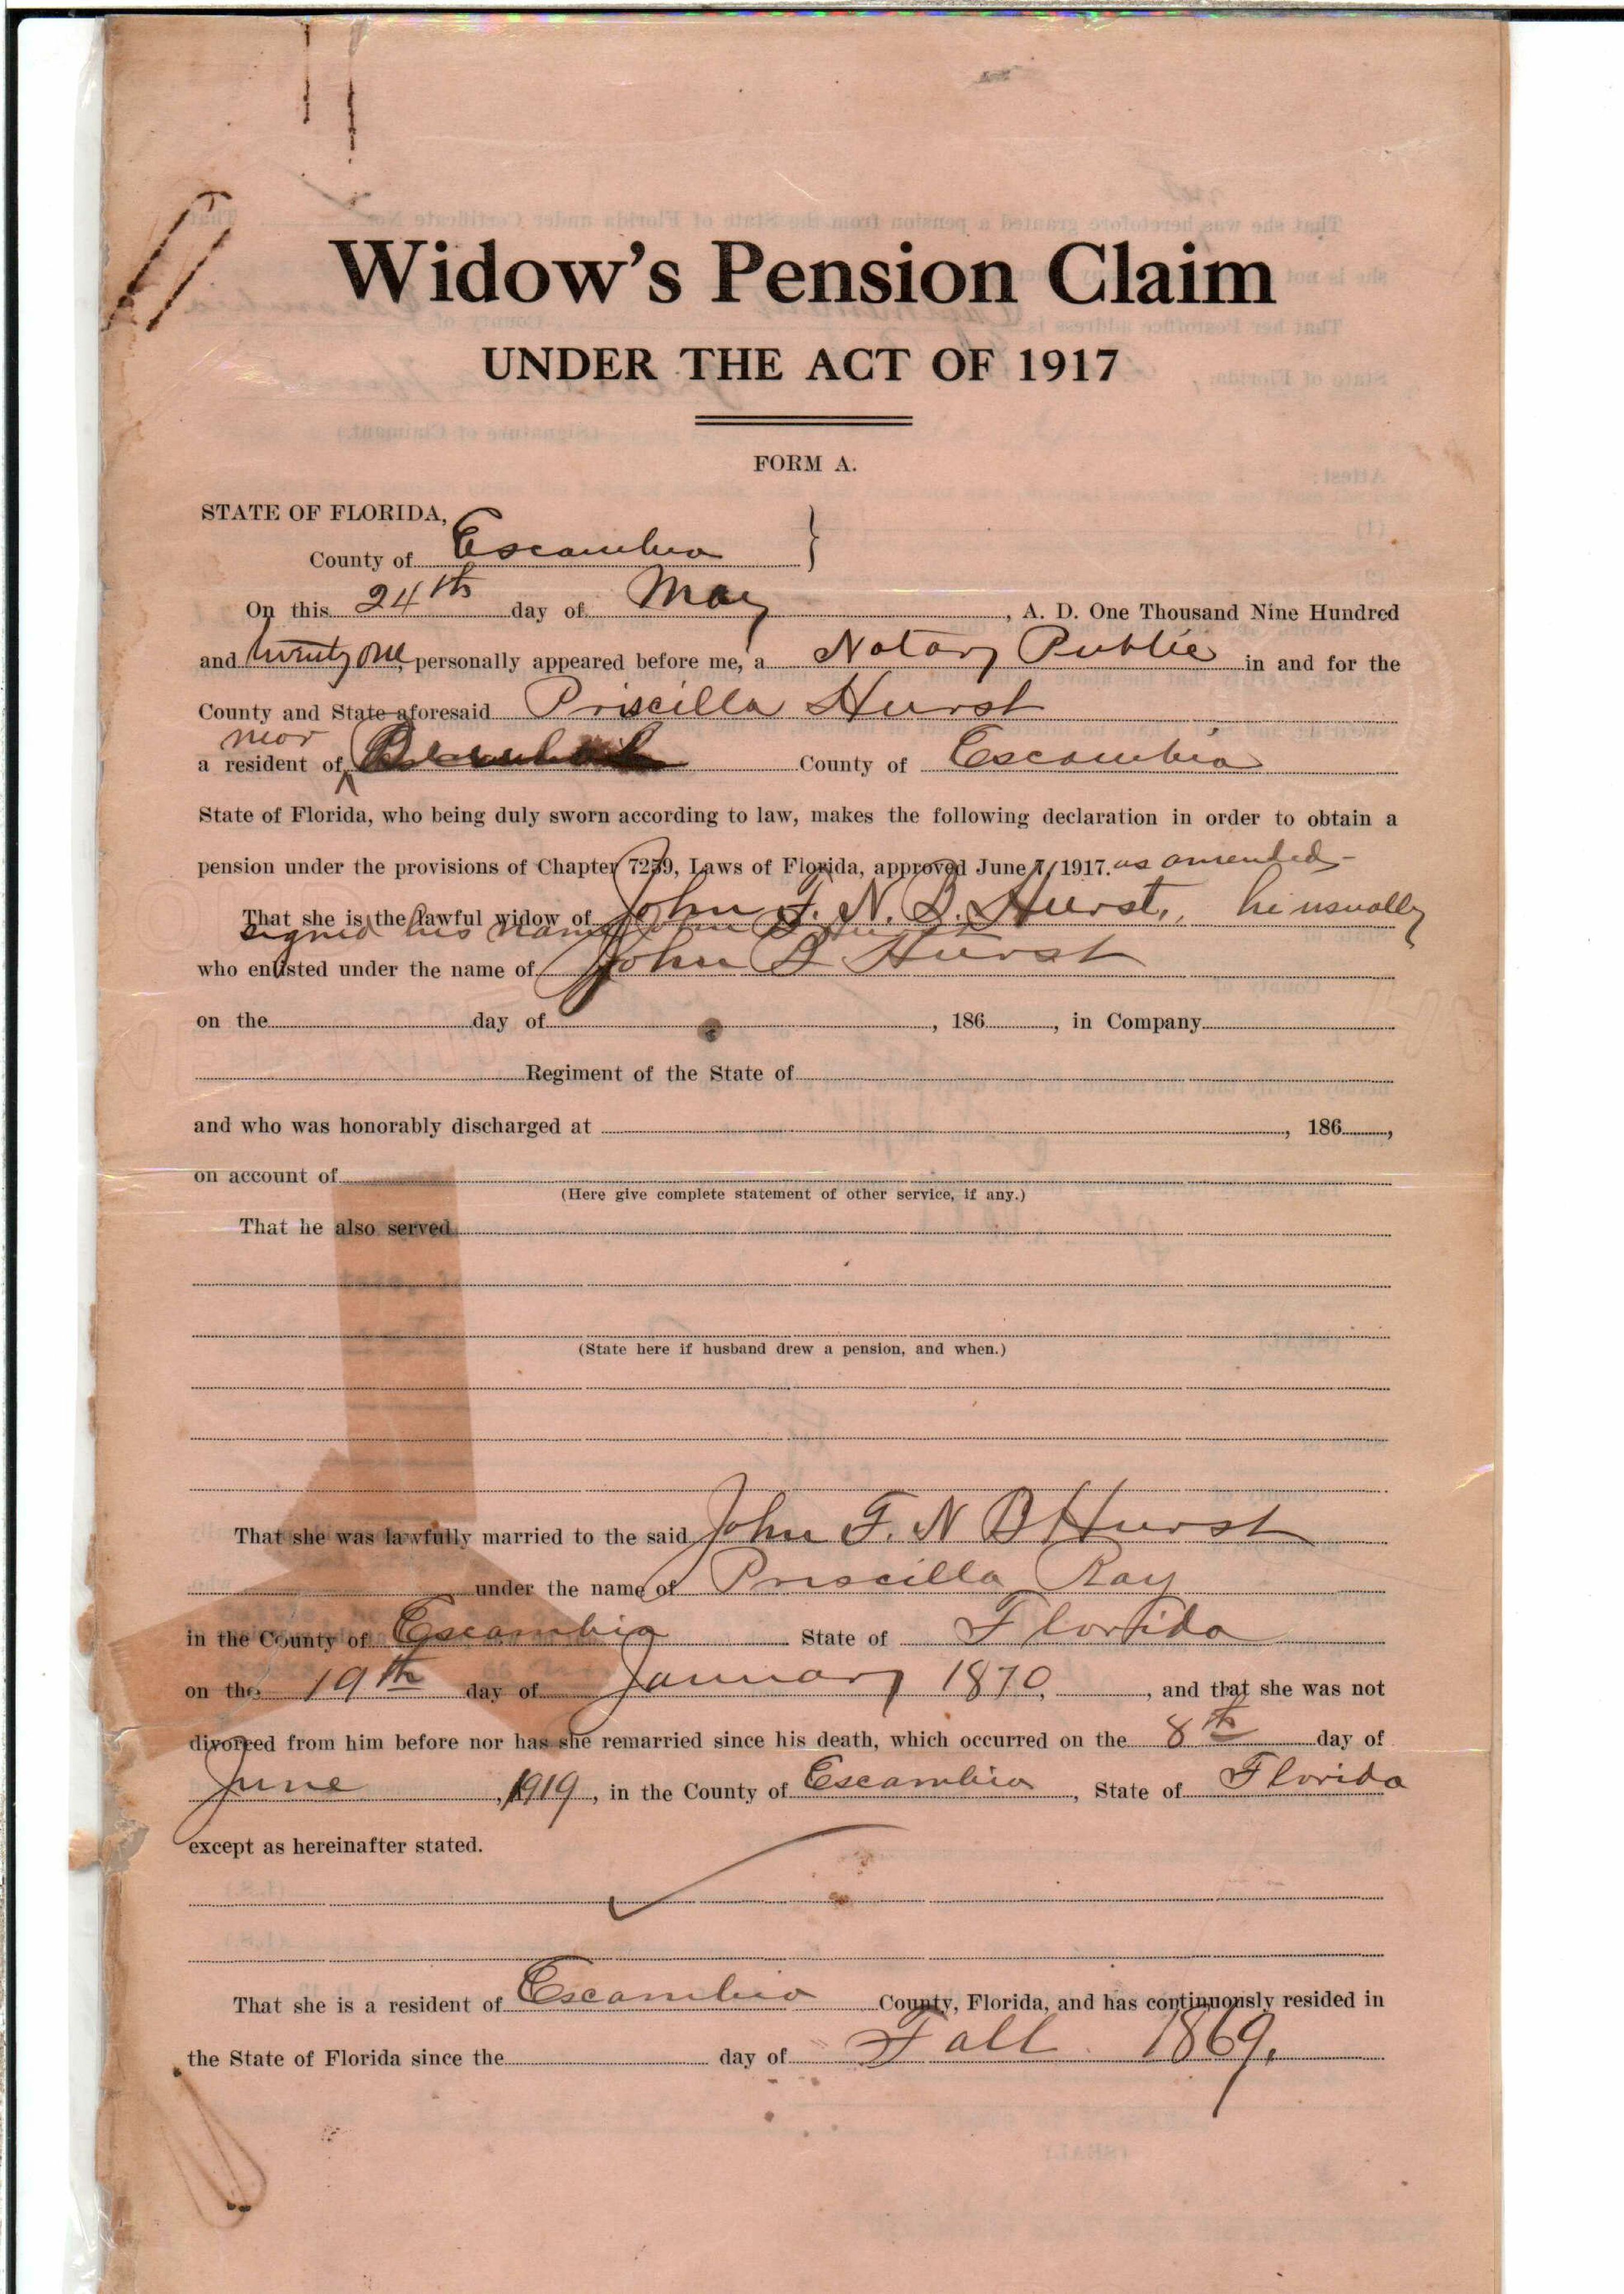 Widow's Pension Claim
UNDER THE ACT OF 1917
FORM A.
STATE OF FLORIDA,
County of Escambia }
On this 24th day of May, A. D. One Thousand Nine Hundred
and twenty one, personally appeared before me, a Notary Public in and for the
County and State aforesaid Priscilla Hurst
a resident of County of Escambia
State of Florida, who being duly sworn according to law, makes the following declaration in order to obtain a
pension under the provisions of Chapter 7259, Laws of Florida, approved June 7, 1917. as amended
That she is the lawful widow of John F. N. B. Hurst, he usually
signed his name
who enlisted under the name of John B Hurst
on the day of , 186 , in Company
Regiment of the State of
and who was honorably discharged at , 186 ,
on account of
(Here give complete statement of other service, if any.)
That he also served
(State here if husband drew a pension, and when.)
That she was lawfully married to the said John F. N B Hurst
under the name of Priscilla Ray
in the County of Escambia State of Florida
on the 19th day of January 1870, , and that she was not
divorced from him before nor has she remarried since his death, which occurred on the 8th day of
June , 1919, in the County of Escambia, State of Florida
except as hereinafter stated.
That she is a resident of Escambia County, Florida, and has continuously resided in
the State of Florida since the day of Fall 1869.